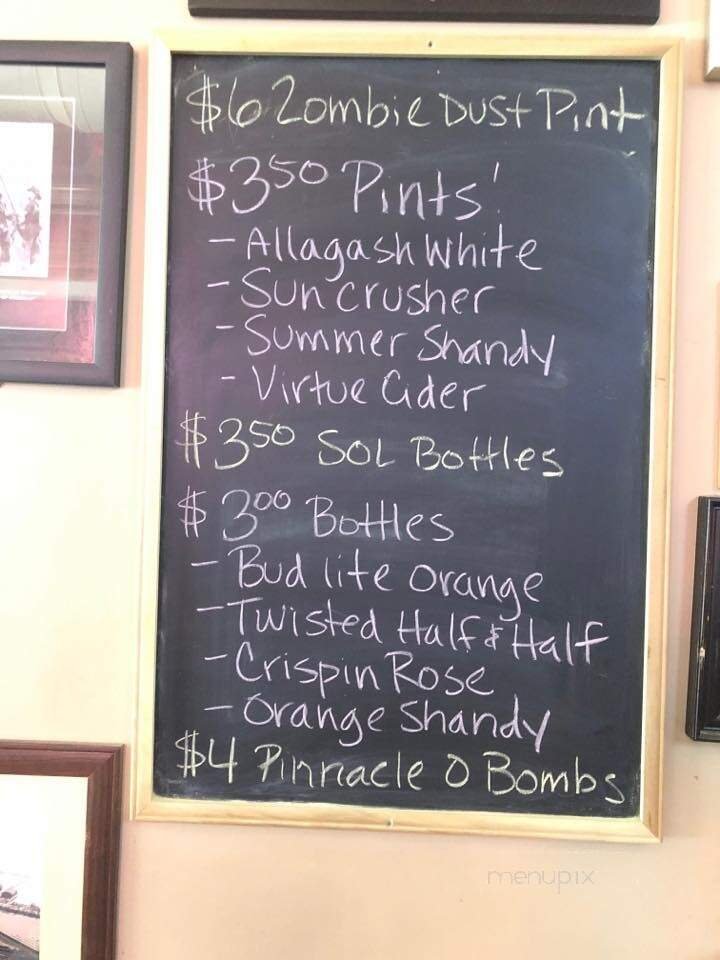 $6 Zombie Dust Pint
$3.50 Pints!
- Allagash White
- Sun Crusher
- Summer Shandy
- Virtue Cider
$3.50 SOL Bottles
$3.00 Bottles
- Bud lite Orange
- Twisted Half & Half
- Crispin Rose
- Orange Shandy
$4 Pinnacle O Bombs
menupix